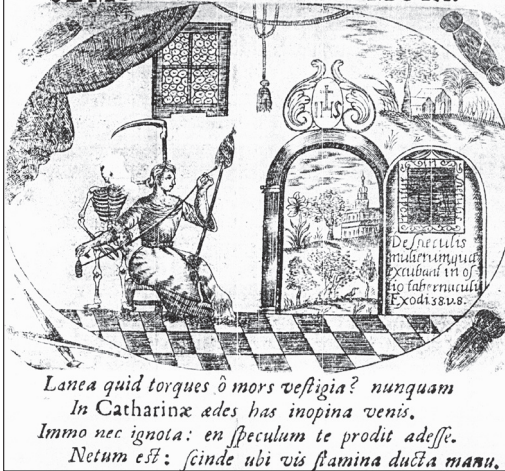 IHS
De speculis
mulierum quæ
excubant in os
tio tabernaculi
Exodi 38. v. 8.
Lanea quid torques ô mors veſtigia? nunquam
In Catharinæ ædes has inopina venis.
Immo nec ignota: en ſpeculum te prodit adeſſe.
Netum eſt: ſcinde ubi vis ſtamina ducta manu.